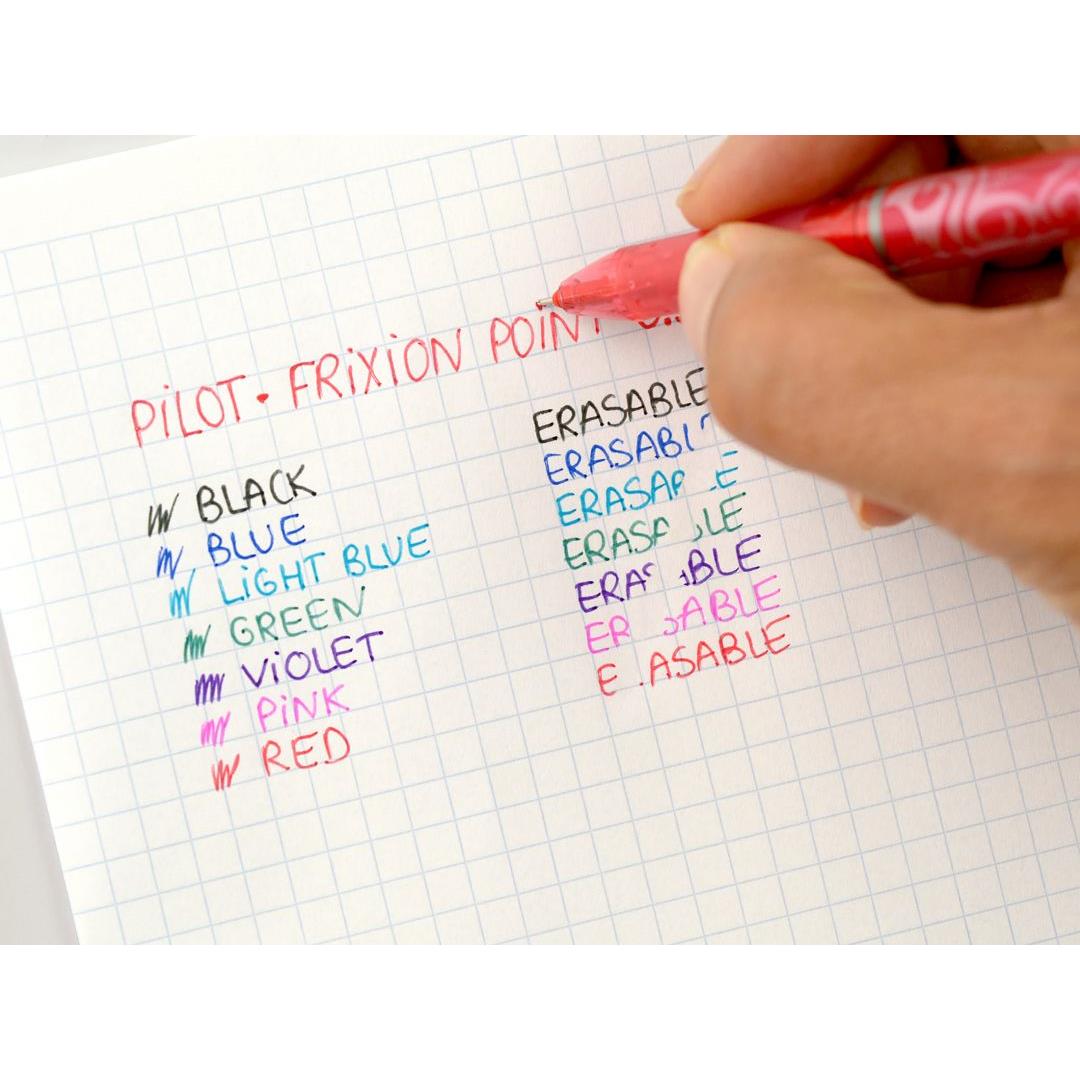 PiLOT • FRiXiON POiNT
BLACK
BLUE
LiGHT BLUE
GREEN
ViOLET
PiNK
RED
ERASABLE
ERASABL
ERASA E
ERAS LE
ERA BLE
ER ABLE
E ASABLE